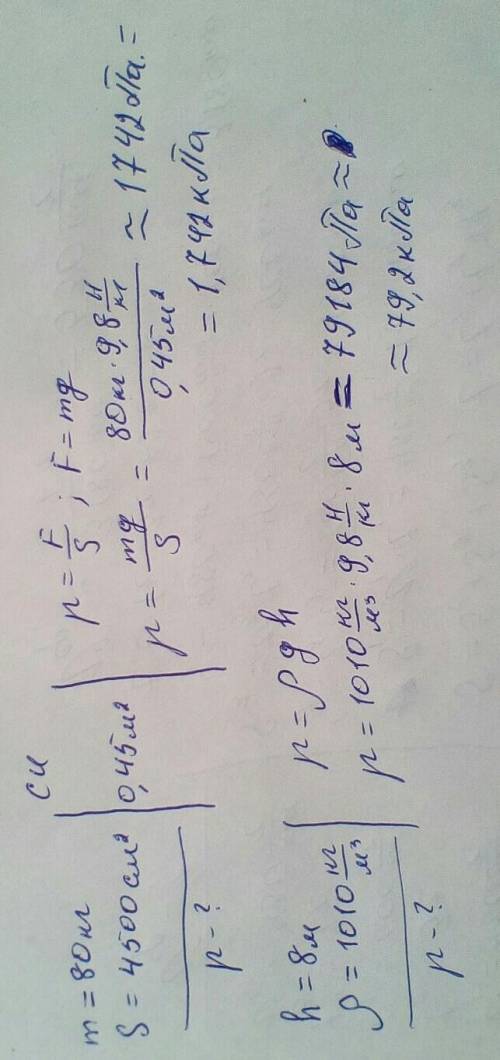 СИ
m = 80 кг
S = 4500 см² | 0,45 м²
p - ?
p = F/S ; F = mg
p = mg/S = 80 кг · 9,8 Н/кг / 0,45 м² ≈ 1742 Па. =
= 1,742 кПа
h = 8 м
ρ = 1010 кг/м³
p - ?
p = ρ g h
p = 1010 кг/м³ · 9,8 Н/кг · 8 м = 79184 Па ≈
≈ 79,2 кПа